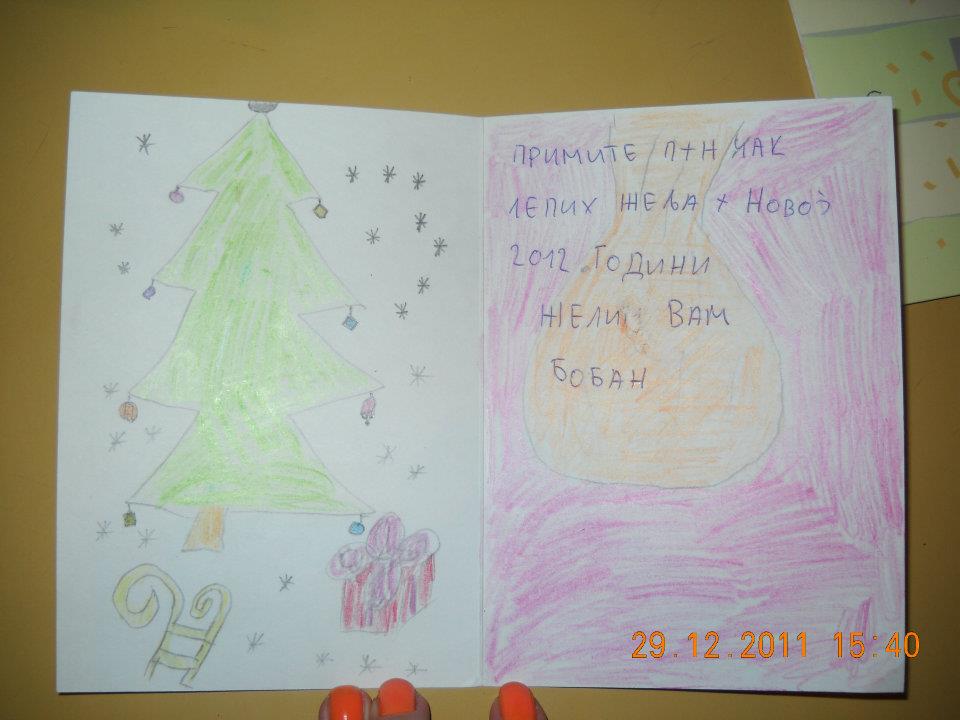 ПРИМИТЕ ПУН ЏАК
ЛЕПИХ ЖЕЉА У НОВОЈ
2012. ГОДИНИ
ЖЕЛИ ВАМ
БОБАН
29.12.2011 15:40